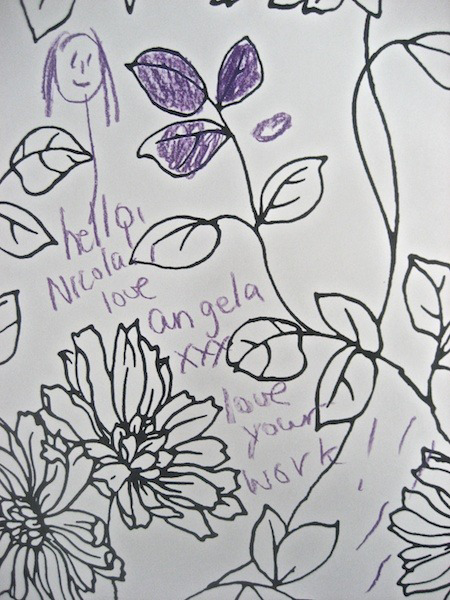 hello,
Nicola
love
angela
xxx
love
your
work